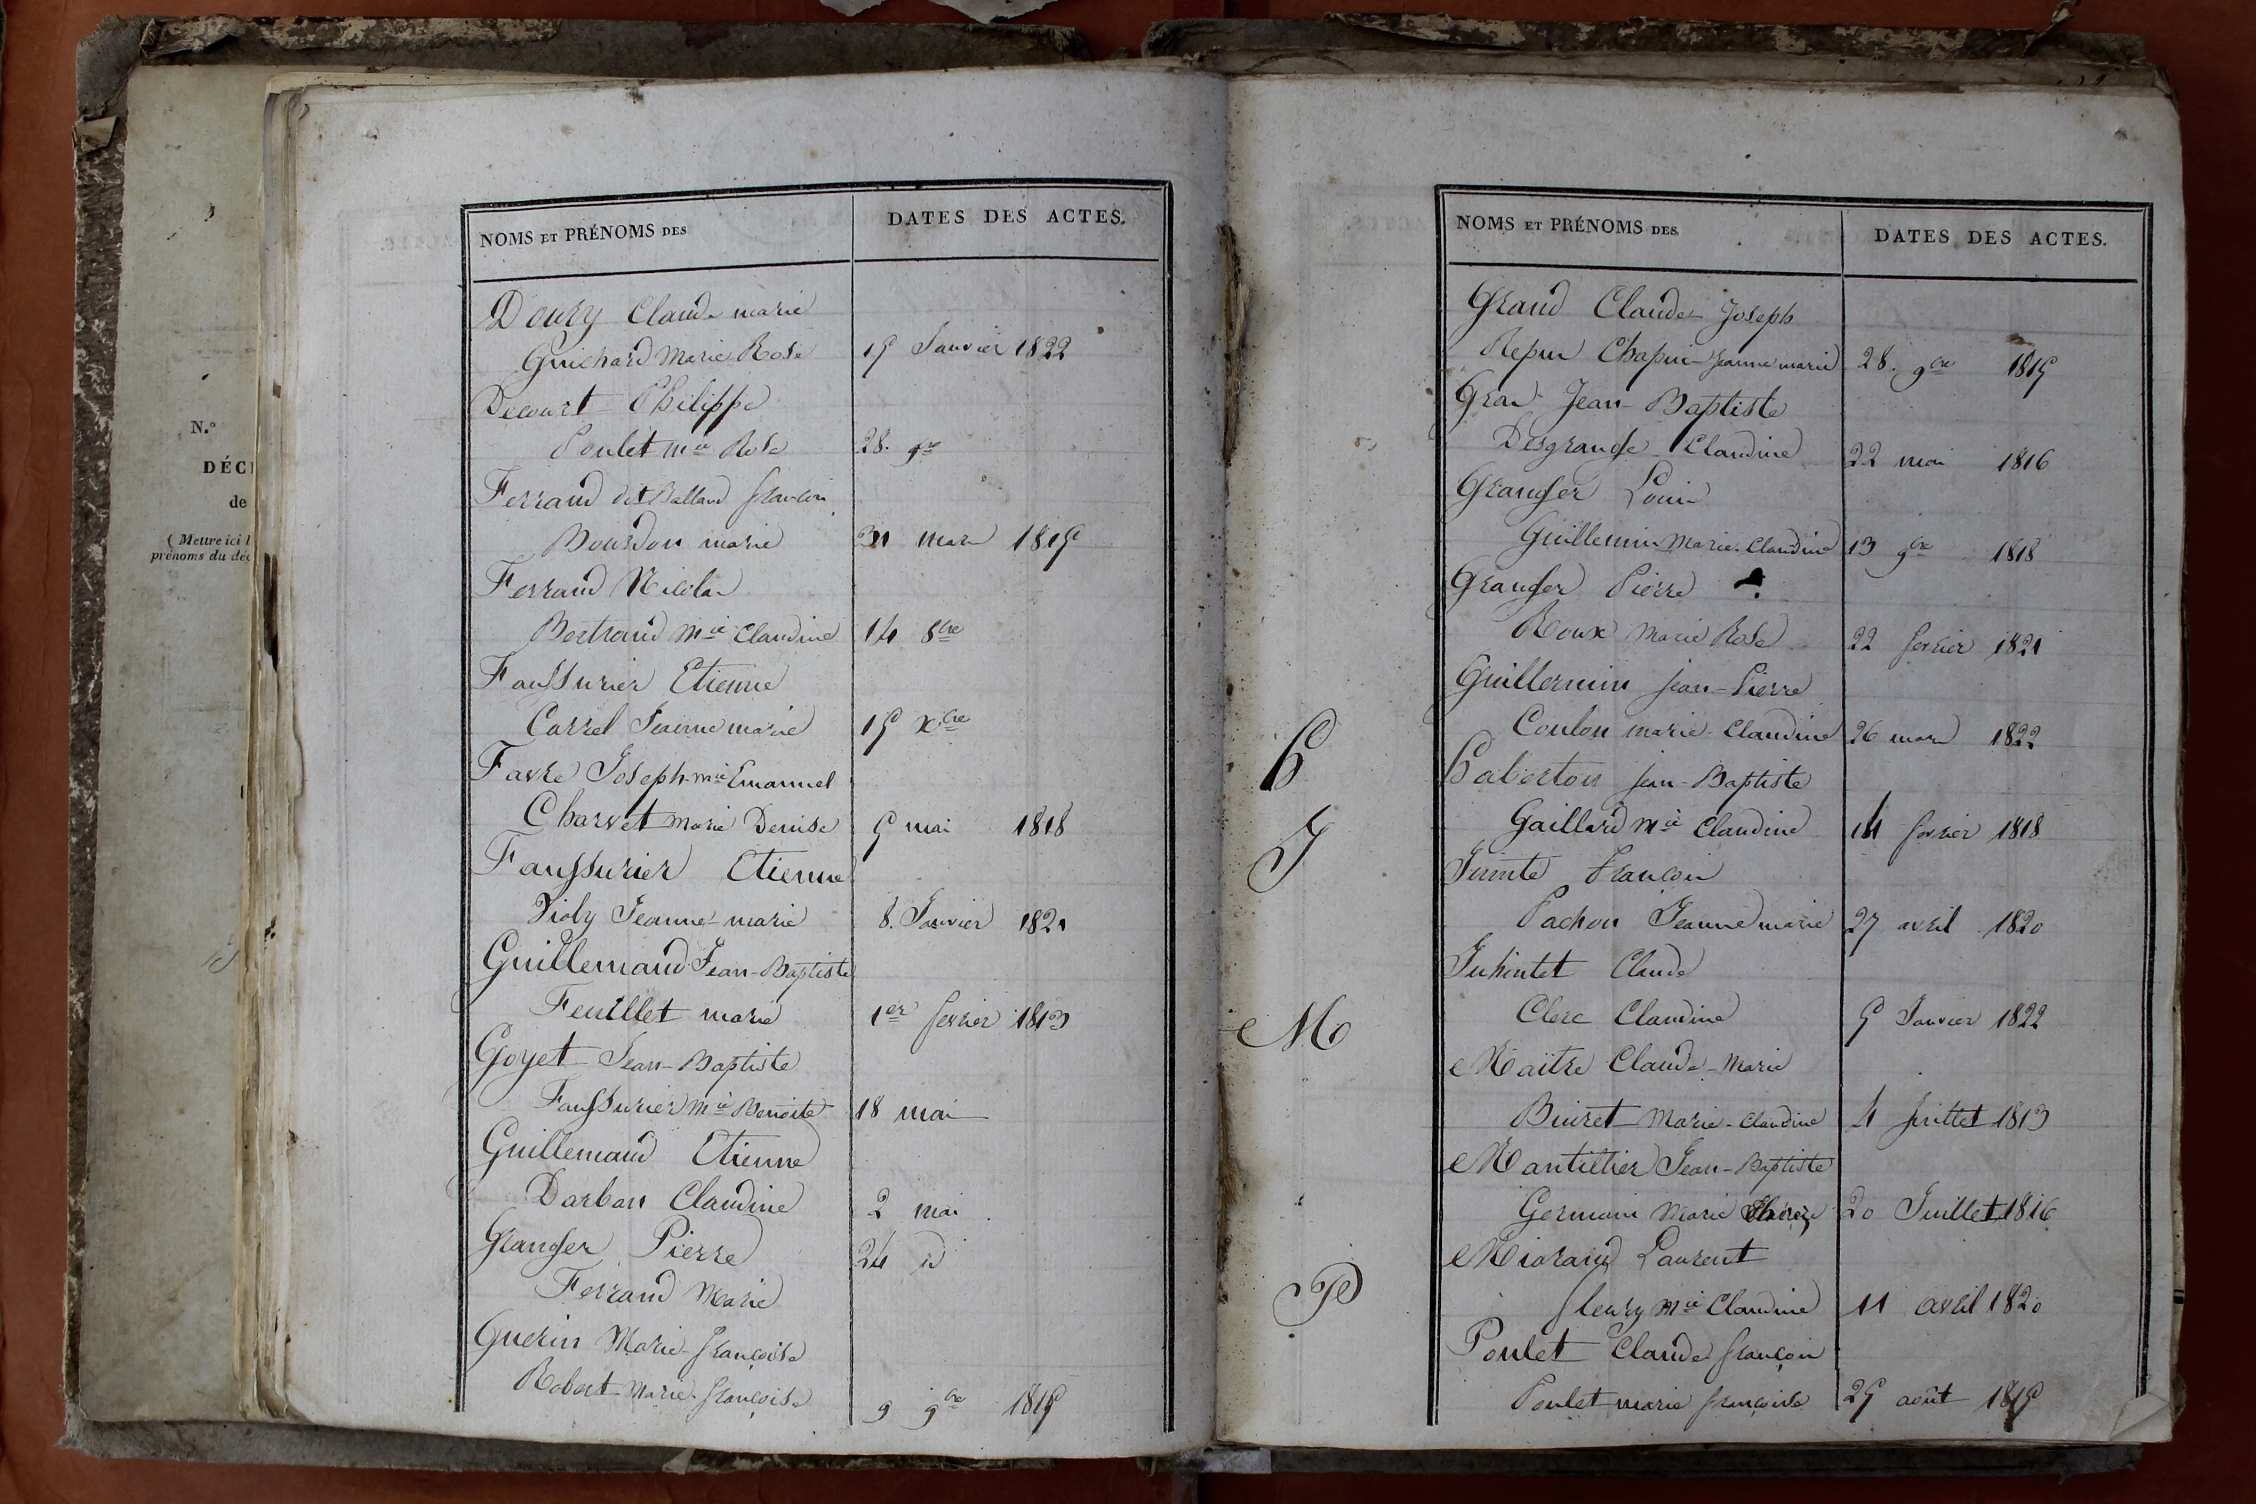 N.°
DÉC
de
( Mettre ici l
prénoms du déc
NOMS ET PRÉNOMS DES
DATES DES ACTES.
Doury Claude marie
Guichard Marie Rose 15 Janvier 1822
Decourt Philippe
Poulet mie Rose 28. 9re
Ferraud dit Balland françois
Bourdon marie 31 mars 1815
Ferraud Nicolas
Bertraud Mie Claudine 14 8bre
Faussurier Etienne
Carrel Jeanne marie 15 Xbre
Favre Joseph mie Emanuel
Charvet Marie Denise 5 mai 1818
Faussurier Etienne
Violy Jeanne marie 8. Janvier 1821
Guillemaud Jean-Baptiste
Feuillet marie 1er fevrier 1813
Goyet Jean-Baptiste
Faussurier Mie Benoite 18 mai
Guillemaud Etienne
Darban Claudine 2 mai
Granger Pierre 24 d
Ferraud Marie
Guerin Marie françoise
Robert Marie françoise 9 9bre 1815
NOMS ET PRÉNOMS DES
DATES DES ACTES.
Graud Claude Joseph
Chapuis Jeanne marie 28. 9bre 1815
Gras Jean-Baptiste
Desgrange Claudine 22 mai 1816
Granger Louis
Guillermin Marie-Claudine 13 9bre 1818
Granger Pierre
Roux Marie Rose 22 fevrier 1821
Guillermin jean-Pierre
Coulon marie Claudine 26 mars 1822
H
Haberton jean-Baptiste
Gaillard Mie Claudine 14 fevrier 1818
J
François
Pachon Jeanne marie 27 avril 1820
Claude
Clerc Claudine 5 Janvier 1822
M
Maitre Claude-Marie
Buiret Marie-Claudine 4 juillet 1813
Mantillier Jean-Baptiste
Germain Marie 20 Juillet 1816
Miorand Laurent
P
fleury Mie Claudine 11 avril 1820
Poulet Claude françois
Poulet marie françoise 25 août 1815